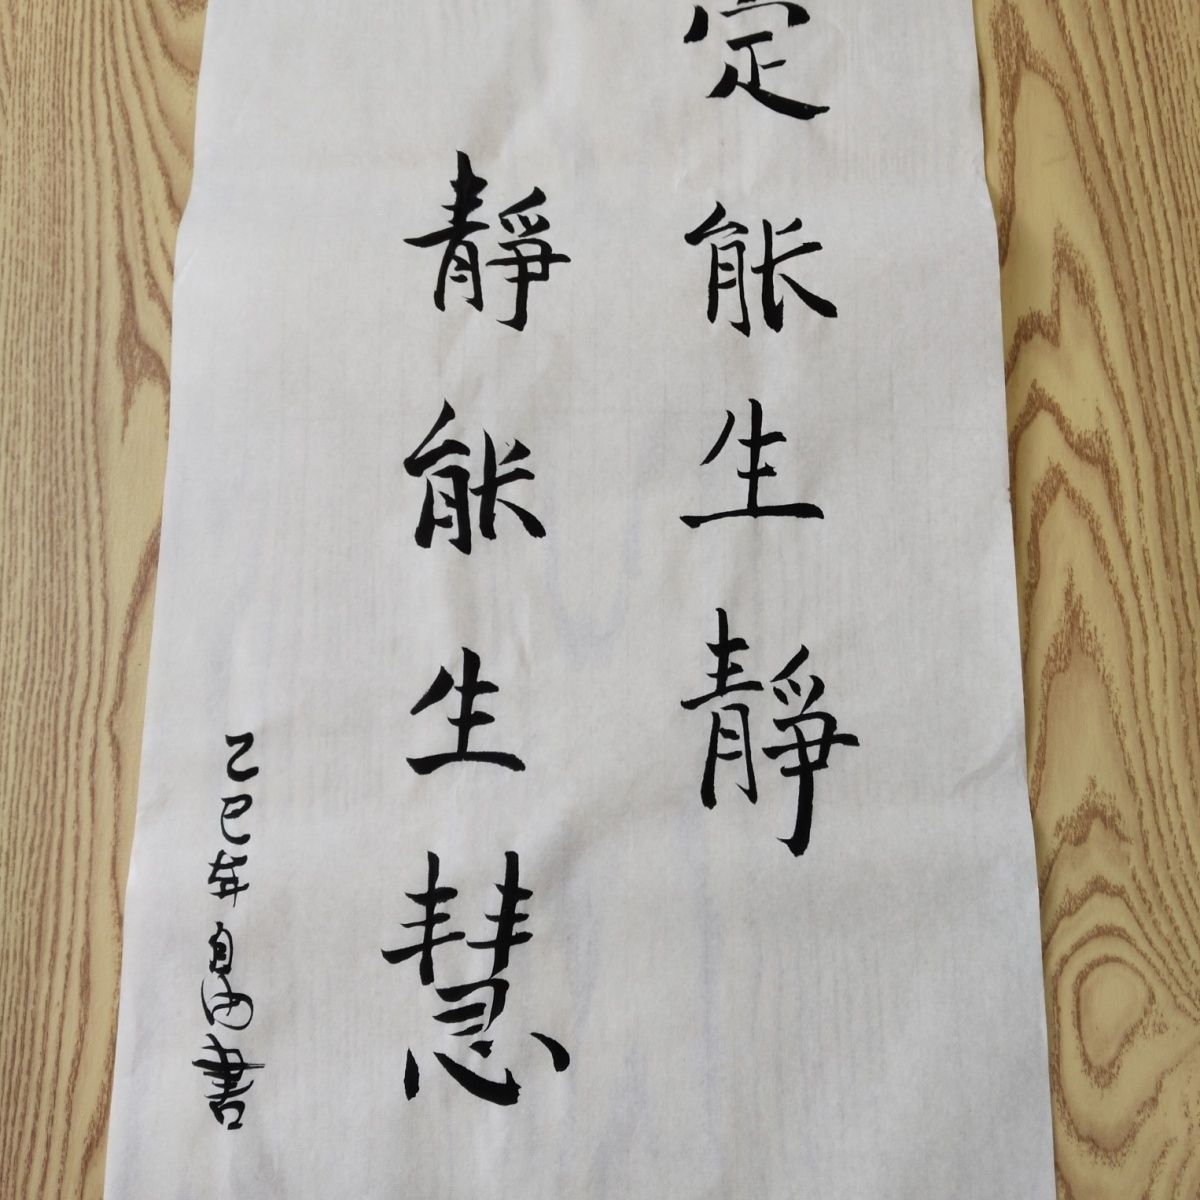 定能生靜
靜能生慧
乙巳年自由書